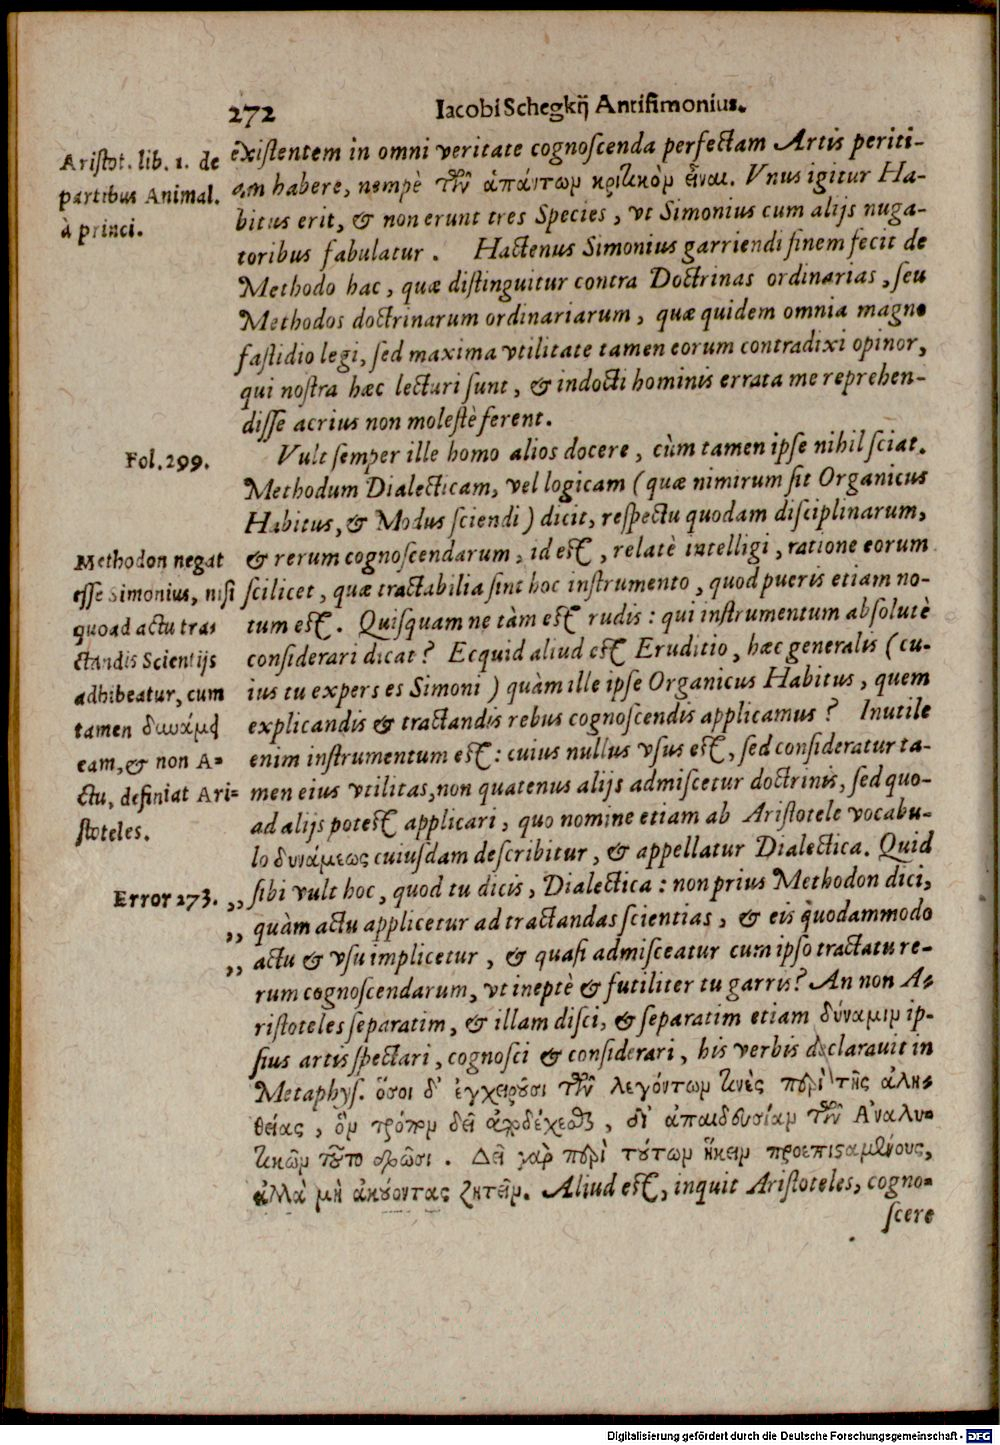 272 Iacobi Schegkij Antisimonius.
Aristot. lib. 1. de
partibus Animal.
à princi.
existentem in omni veritate cognoscenda perfectam Artis periti-
am habere, nempè τῶν ἁπάντων κριτικὸν εἶναι. Vnus igitur Ha-
bitus erit, & non erunt tres Species, vt Simonius cum alijs nuga-
toribus fabulatur. Hactenus Simonius garriendi finem fecit de
Methodo hac, quæ distinguitur contra Doctrinas ordinarias, seu
Methodos doctrinarum ordinariarum, quæ quidem omnia magno
fastidio legi, sed maxima vtilitate tamen eorum contradixi opinor,
qui nostra hæc lecturi sunt, & indocti hominis errata me reprehen-
disse acrius non molestè ferent.
Fol. 299.
Vult semper ille homo alios docere, cùm tamen ipse nihil sciat.
Methodum Dialecticam, vel logicam (quæ nimirum sit Organicus
Habitus, & Modus sciendi) dicit, respectu quodam disciplinarum,
& rerum cognoscendarum, id est, relatè intelligi, ratione eorum
scilicet, quæ tractabilia sint hoc instrumento, quod pueris etiam no-
tum est. Quisquam ne tàm est rudis: qui instrumentum absolutè
considerari dicat? Ecquid aliud est Eruditio, hæc generalis (cu-
ius tu expers es Simoni) quàm ille ipse Organicus Habitus, quem
explicandis & tractandis rebus cognoscendis applicamus? Inutile
enim instrumentum est: cuius nullus vsus est, sed consideratur ta-
men eius vtilitas, non quatenus alijs admiscetur doctrinis, sed quo-
ad alijs potest applicari, quo nomine etiam ab Aristotele vocabu-
lo δυνάμεως cuiusdam describitur, & appellatur Dialectica. Quid
Methodon negat
esse Simonius, nisi
quoad actu tra-
ctandis Scientijs
adhibeatur, cum
tamen δυνάμει
eam, & non A-
ctu, definiat Ari-
stoteles.
Error 273.
„ sibi vult hoc, quod tu dicis, Dialectica: non prius Methodon dici,
„ quàm actu applicetur ad tractandas scientias, & eis quodammodo
„ actu & vsu implicetur, & quasi admisceatur cum ipso tractatu re-
rum cognoscendarum, vt ineptè & futiliter tu garris? An non A-
ristoteles separatim, & illam disci, & separatim etiam δύναμιν ip-
sius artis spectari, cognosci & considerari, his verbis declarauit in
Metaphys. ὅσοι δ' ἐγχειροῦσι τῶν λεγόντων τινὲς περὶ τῆς ἀλη-
θείας, ὃν τρόπον δεῖ ἀποδέχεσθαι, δι' ἀπαιδευσίαν τῶν Ἀναλυ-
τικῶν τοῦτο δρῶσι. Δεῖ γὰρ περὶ τούτων ἥκειν προεπισταμένους,
ἀλλὰ μὴ ἀκούοντας ζητεῖν. Aliud est, inquit Aristoteles, cogno-
scere
Digitalisierung gefördert durch die Deutsche Forschungsgemeinschaft - DFG